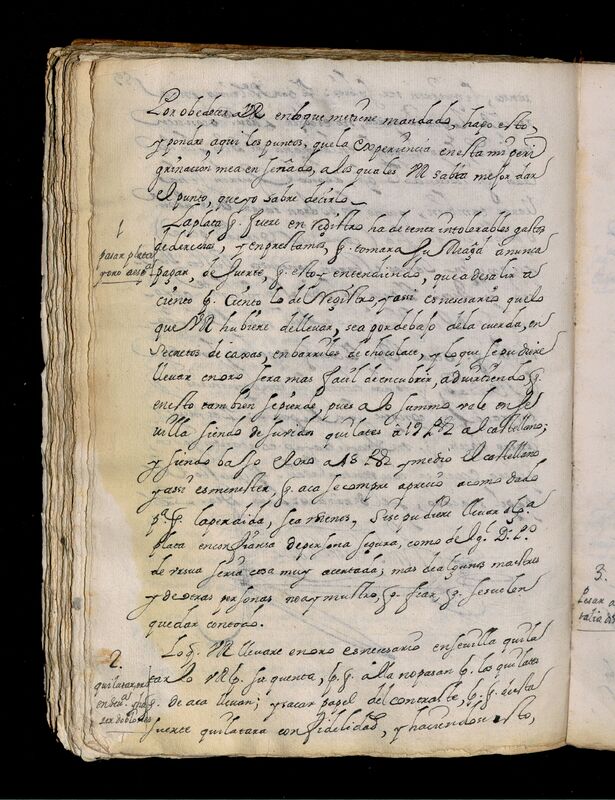 Por obedecer a VR en lo que me tiene mandado, hago esto,
y pondre aqui los puntos, que la experiencia en esta mi peri
grinacion me a enseñado, a los quales VR sabra mejor dar
el punto, que yo sabre decirlo.
1.
pasar plata
y oro a esp.ª
La plata q. fuere en registro ha de tener intolerables gastos
de derechos, y emprestamos, q. tomara su Magd. a nunca
pagar, de suerte, q. estoy entendiendo, que a de salir a
ciento p. ciento lo del Registro, y assi es necesario que lo
que VR hubiere de llevar, sea por debajo de la cuerda, en
secretos de caxas, en barriles de chocolate, y lo que se pudiere
llevar en oro sera mas facil de encubrir, advirtiendo q.
en esto tambien se pierde, pues a lo summo vale en Se
villa siendo de quilates a al castellano;
y siendo baxo el oro a y medio el castellano
y assi es menester, q. aca se compre a precio acomodado
p.ª q. la perdida, sea menos. Si se pudiere llevar
plata en confiansa de persona segura, como de l
de ursua seria cosa muy acertada; mas de algunos maestres
y de otras personas no ay mucho, q. fiar, q. se suelen
quedar con todo.
2.
quilatar
en Sevª.
ser doblones
Lo q. VR llevare en oro es necesario en Sevilla quila
tarlo VR p. su quenta, p. q. alla no pasan p. los quilates
q. de aca llevan; y sacar papel del contraste, p. q. desta
suerte quilatara con fidelidad, y haciendose esto,
3.
Pesar a